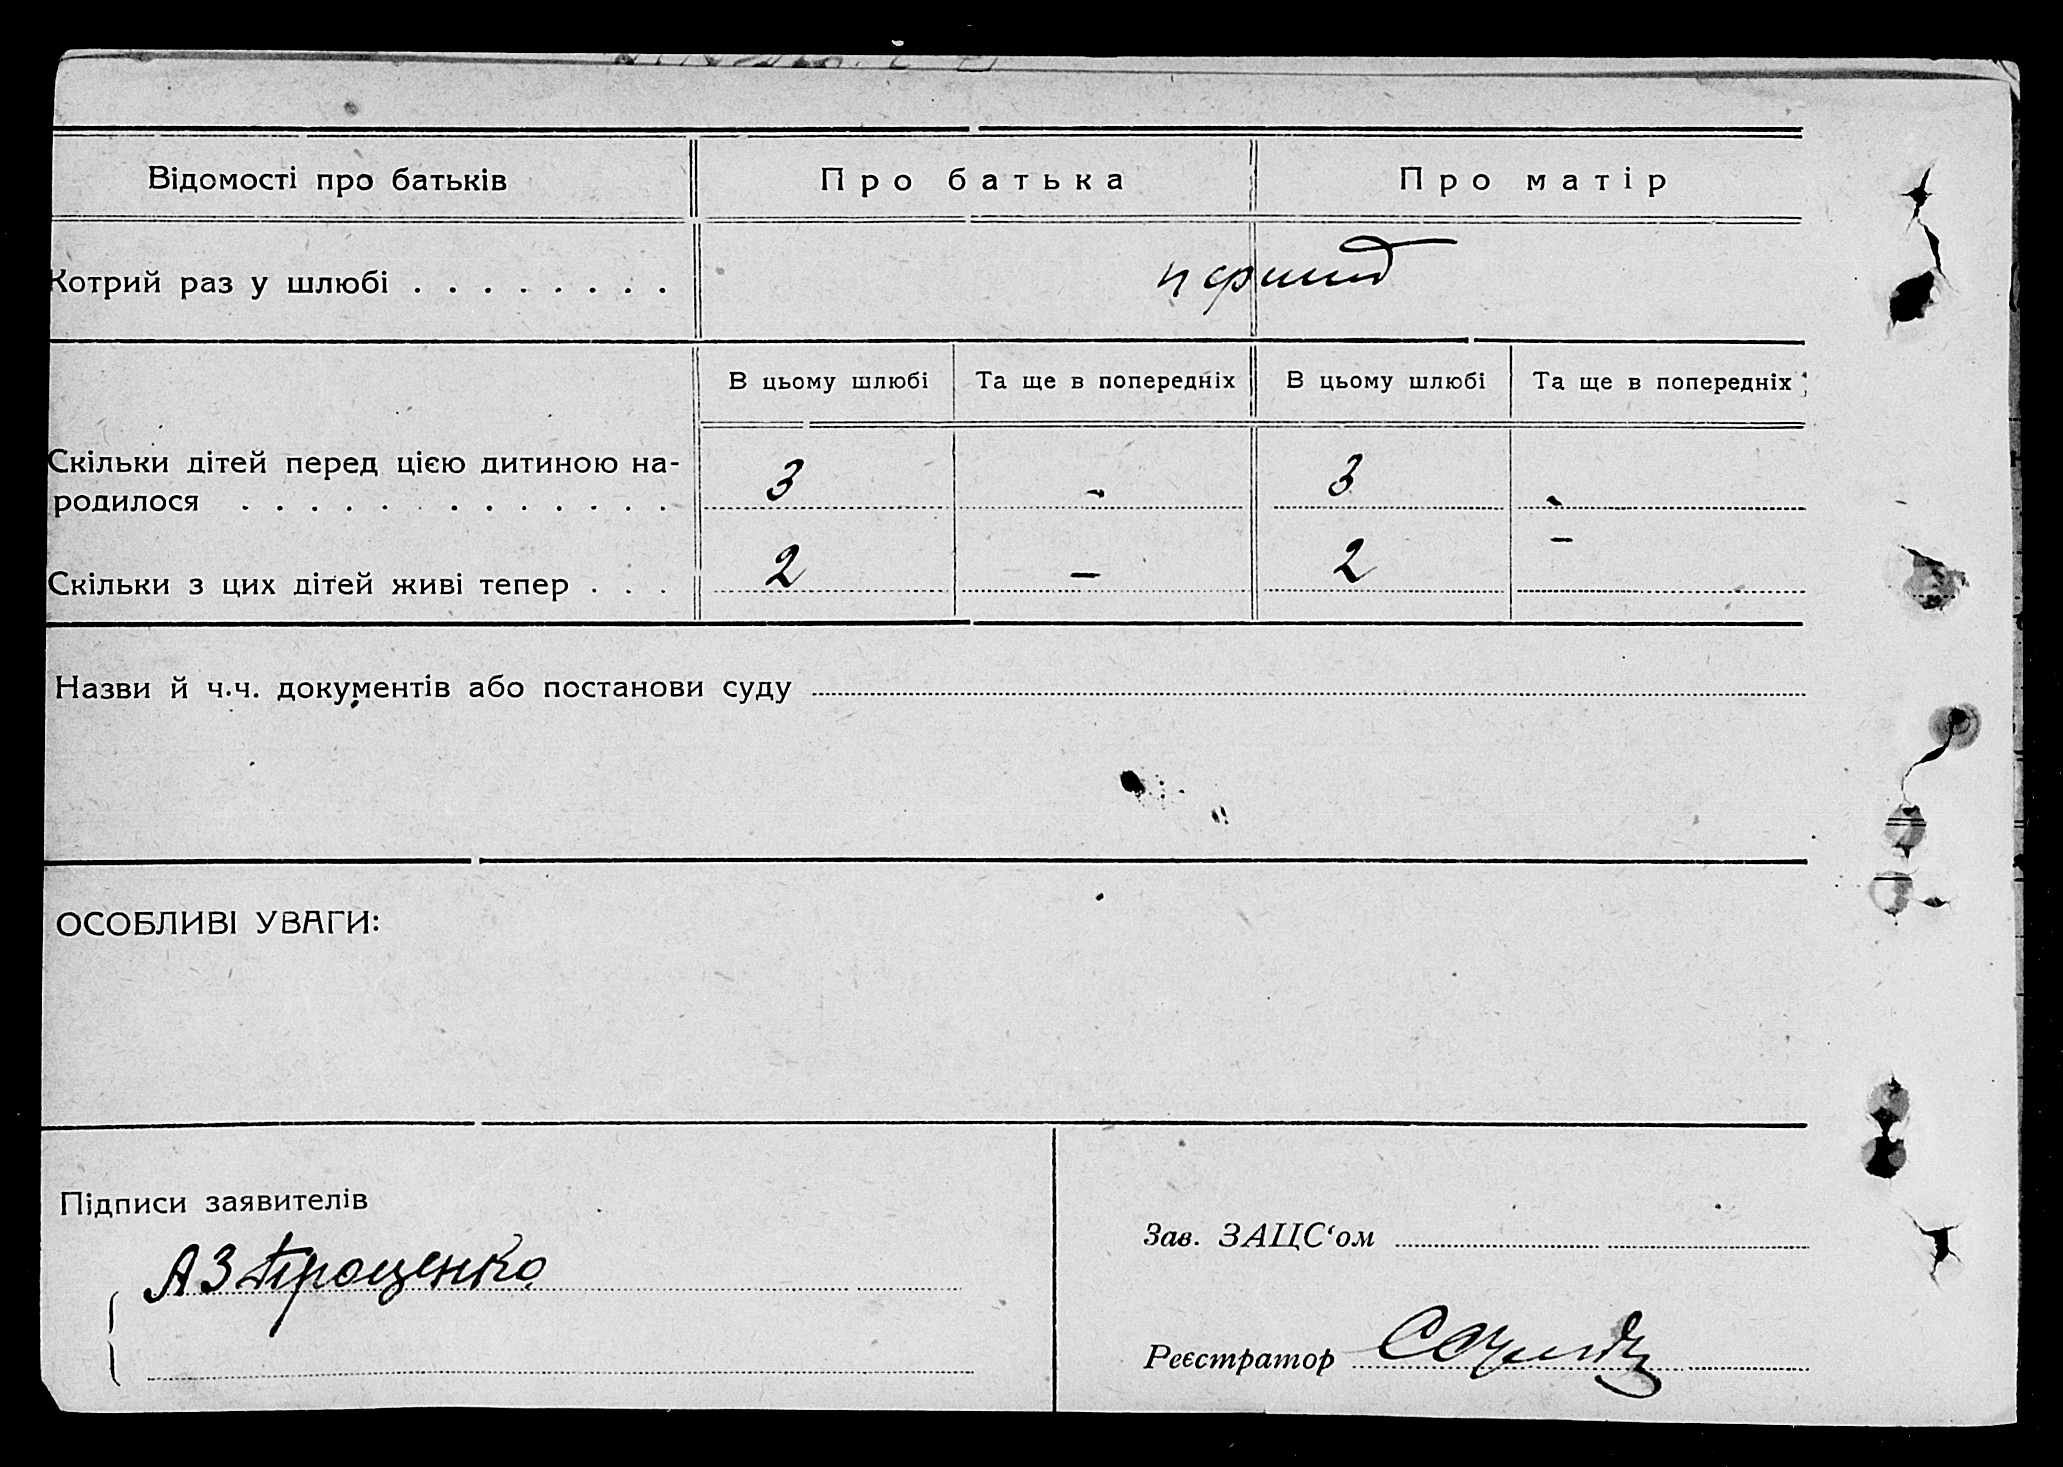 Відомості про батьків Про батька Про матір
Котрий раз у шлюбі . . . . . . . .
В цьому шлюбі Та ще в попередніх В цьому шлюбі Та ще в попередніх
Скільки дітей перед цією дитиною на-
родилося . . . . . . . . . . . . . 3 - 3 -
Скільки з цих дітей живі тепер . . . 2 - 2 -
Назви й ч.ч. документів або постанови суду
ОСОБЛИВІ УВАГИ:
Підписи заявителів
Зав. ЗАЦС‘ом
АЗ Проценко
Реєстратор